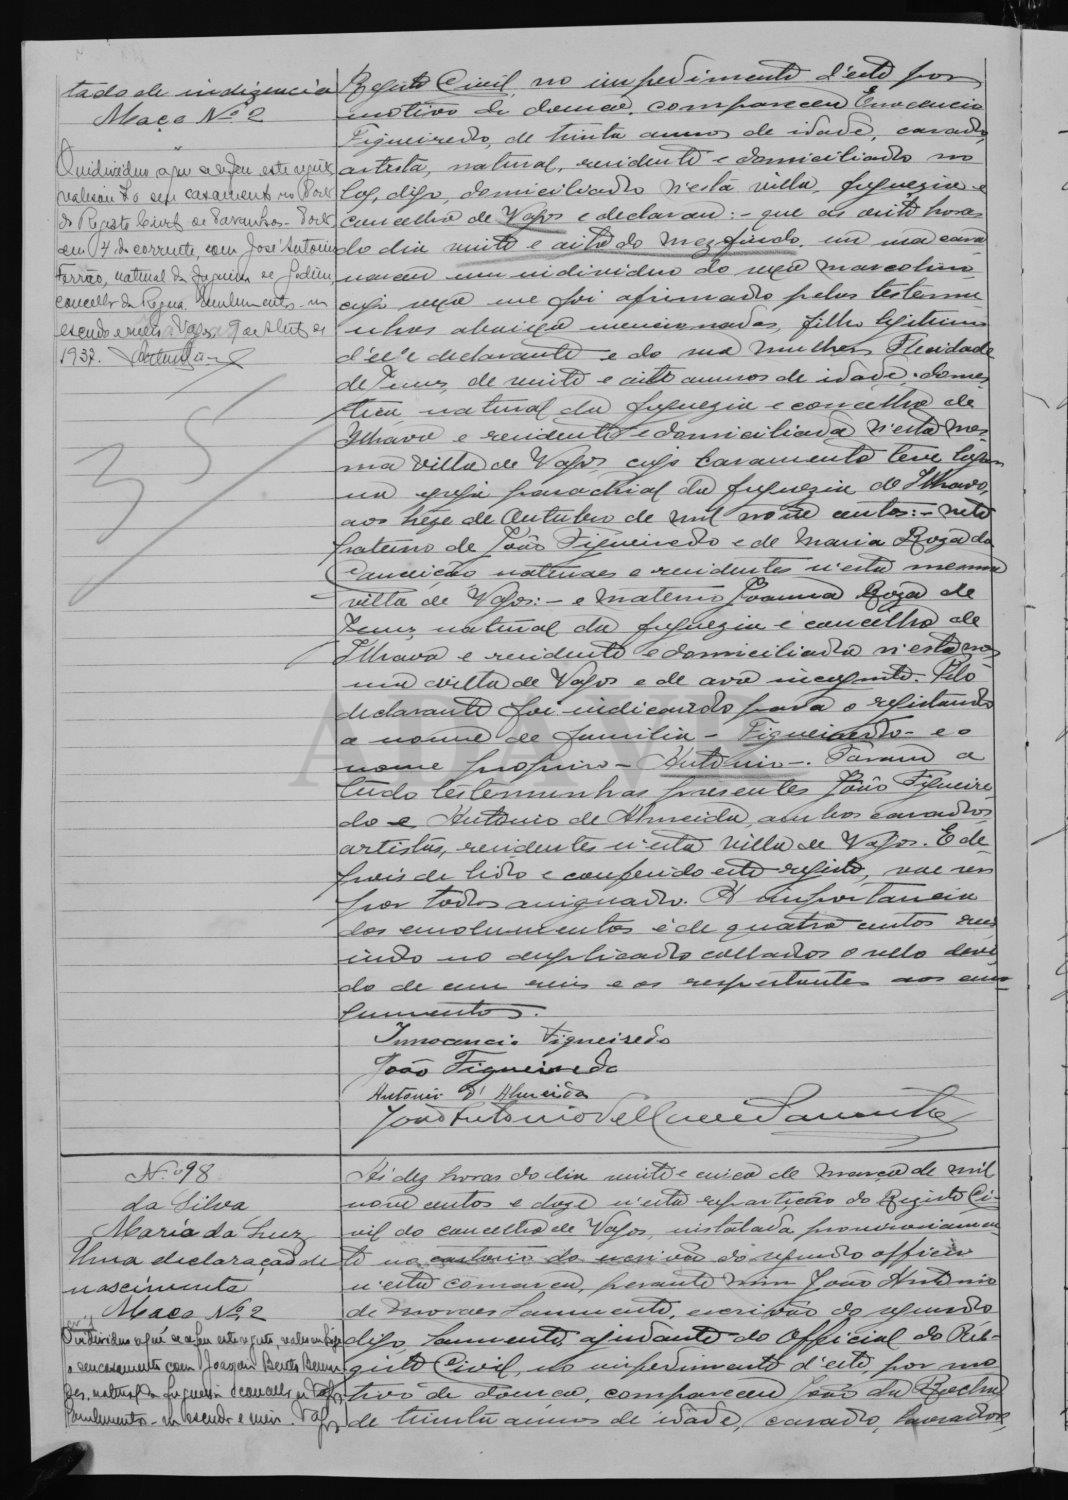 tado de indigencia
Maço Nº 2
O individuo a que se refere este registo
realisou o seu casamento no Posto
do Registo Civil de
em 4 do corrente, com José Antonio
Ferrão, natural da freguesia de Godim,
concelho da Regua. Emolumentos - um
escudo e meio. Vagos, 9 de Abril de
1937.
35
Registo Civil, no impedimento d'este por
motivo de doença, compareceu Innocencio
Figueiredo, de trinta annos de idade, casado,
artista, natural, residente e domiciliado no
log, digo, domiciliado n'esta villa, freguezia e
concelho de Vagos e declarou: - que ás oito horas
do dia vinte e oito do mez findo, em sua casa
nasceu um individuo do sexo masculino
cujo sexo me foi afirmado pelas testemu
nhas abaixo mencionadas, filho legitimo
d'elle declarante e de sua mulher Felicidade
de Jesus, de vinte e oito annos de idade, domes
tica natural da freguezia e concelho de
Ilhavo e residente e domiciliada n'esta mes
ma villa de Vagos, cujo casamento teve lugar
na egreja parochial da freguezia de Ilhavo,
aos treze de Outubro de mil nove centos: - neto
paterno de João Figueiredo e de Maria Roza da
Conceição naturaes e residentes n'esta mesma
villa de Vagos: - e materno Joanna Roza de
Jesus, natural da freguezia e concelho de
Ilhavo e residente e domiciliada n'esta mes
ma villa de Vagos e de avô incognito. Pelo
declarante foi indicado para o registando
o nome de familia - Figueiredo - e o
nome proprio - Antonio -. Foram a
tudo testemunhas presentes João Figueire
do e Antonio de Almeida, ambos casados
artistas, residentes n'esta villa de Vagos. E de
pois de lido e conferido este registo, vae ser
por todos assignado. A importancia
dos emolumentos é de quatro centos reis
indo no duplicado collados o sello devi
do de cem reis e os respeitantes aos emo
lumentos.
Innocencio Figueiredo
João Figueiredo
Antonio d' Almeida
João Antonio de Moraes Sarmento
Nº 98
da Silva
Maria da Luz
Uma declaração de
nascimento
Maço Nº 2
O individuo a que se refere este registo, realisou hoje
o seu casamento com Joaquim Bento
natural da freguesia e concelho de Vagos
Emolumentos - um escudo e meio. Vagos
Ás dez horas do dia vinte e cinco de março de mil
nove centos e doze n'esta repartição do Registo Ci-
vil do concelho de Vagos, installada provisoriamen
te no cartorio do escrivão do segundo officio
n'esta comarca, perante mim João Antonio
de Moraes Sarmento, escrivão do segundo
digo, Sarmento, ajudante do Official do Re-
gisto Civil, no impedimento d'este, por mo
tivo de doença, compareceu João da Rocha
de trinta annos de idade, casado, lavrador,